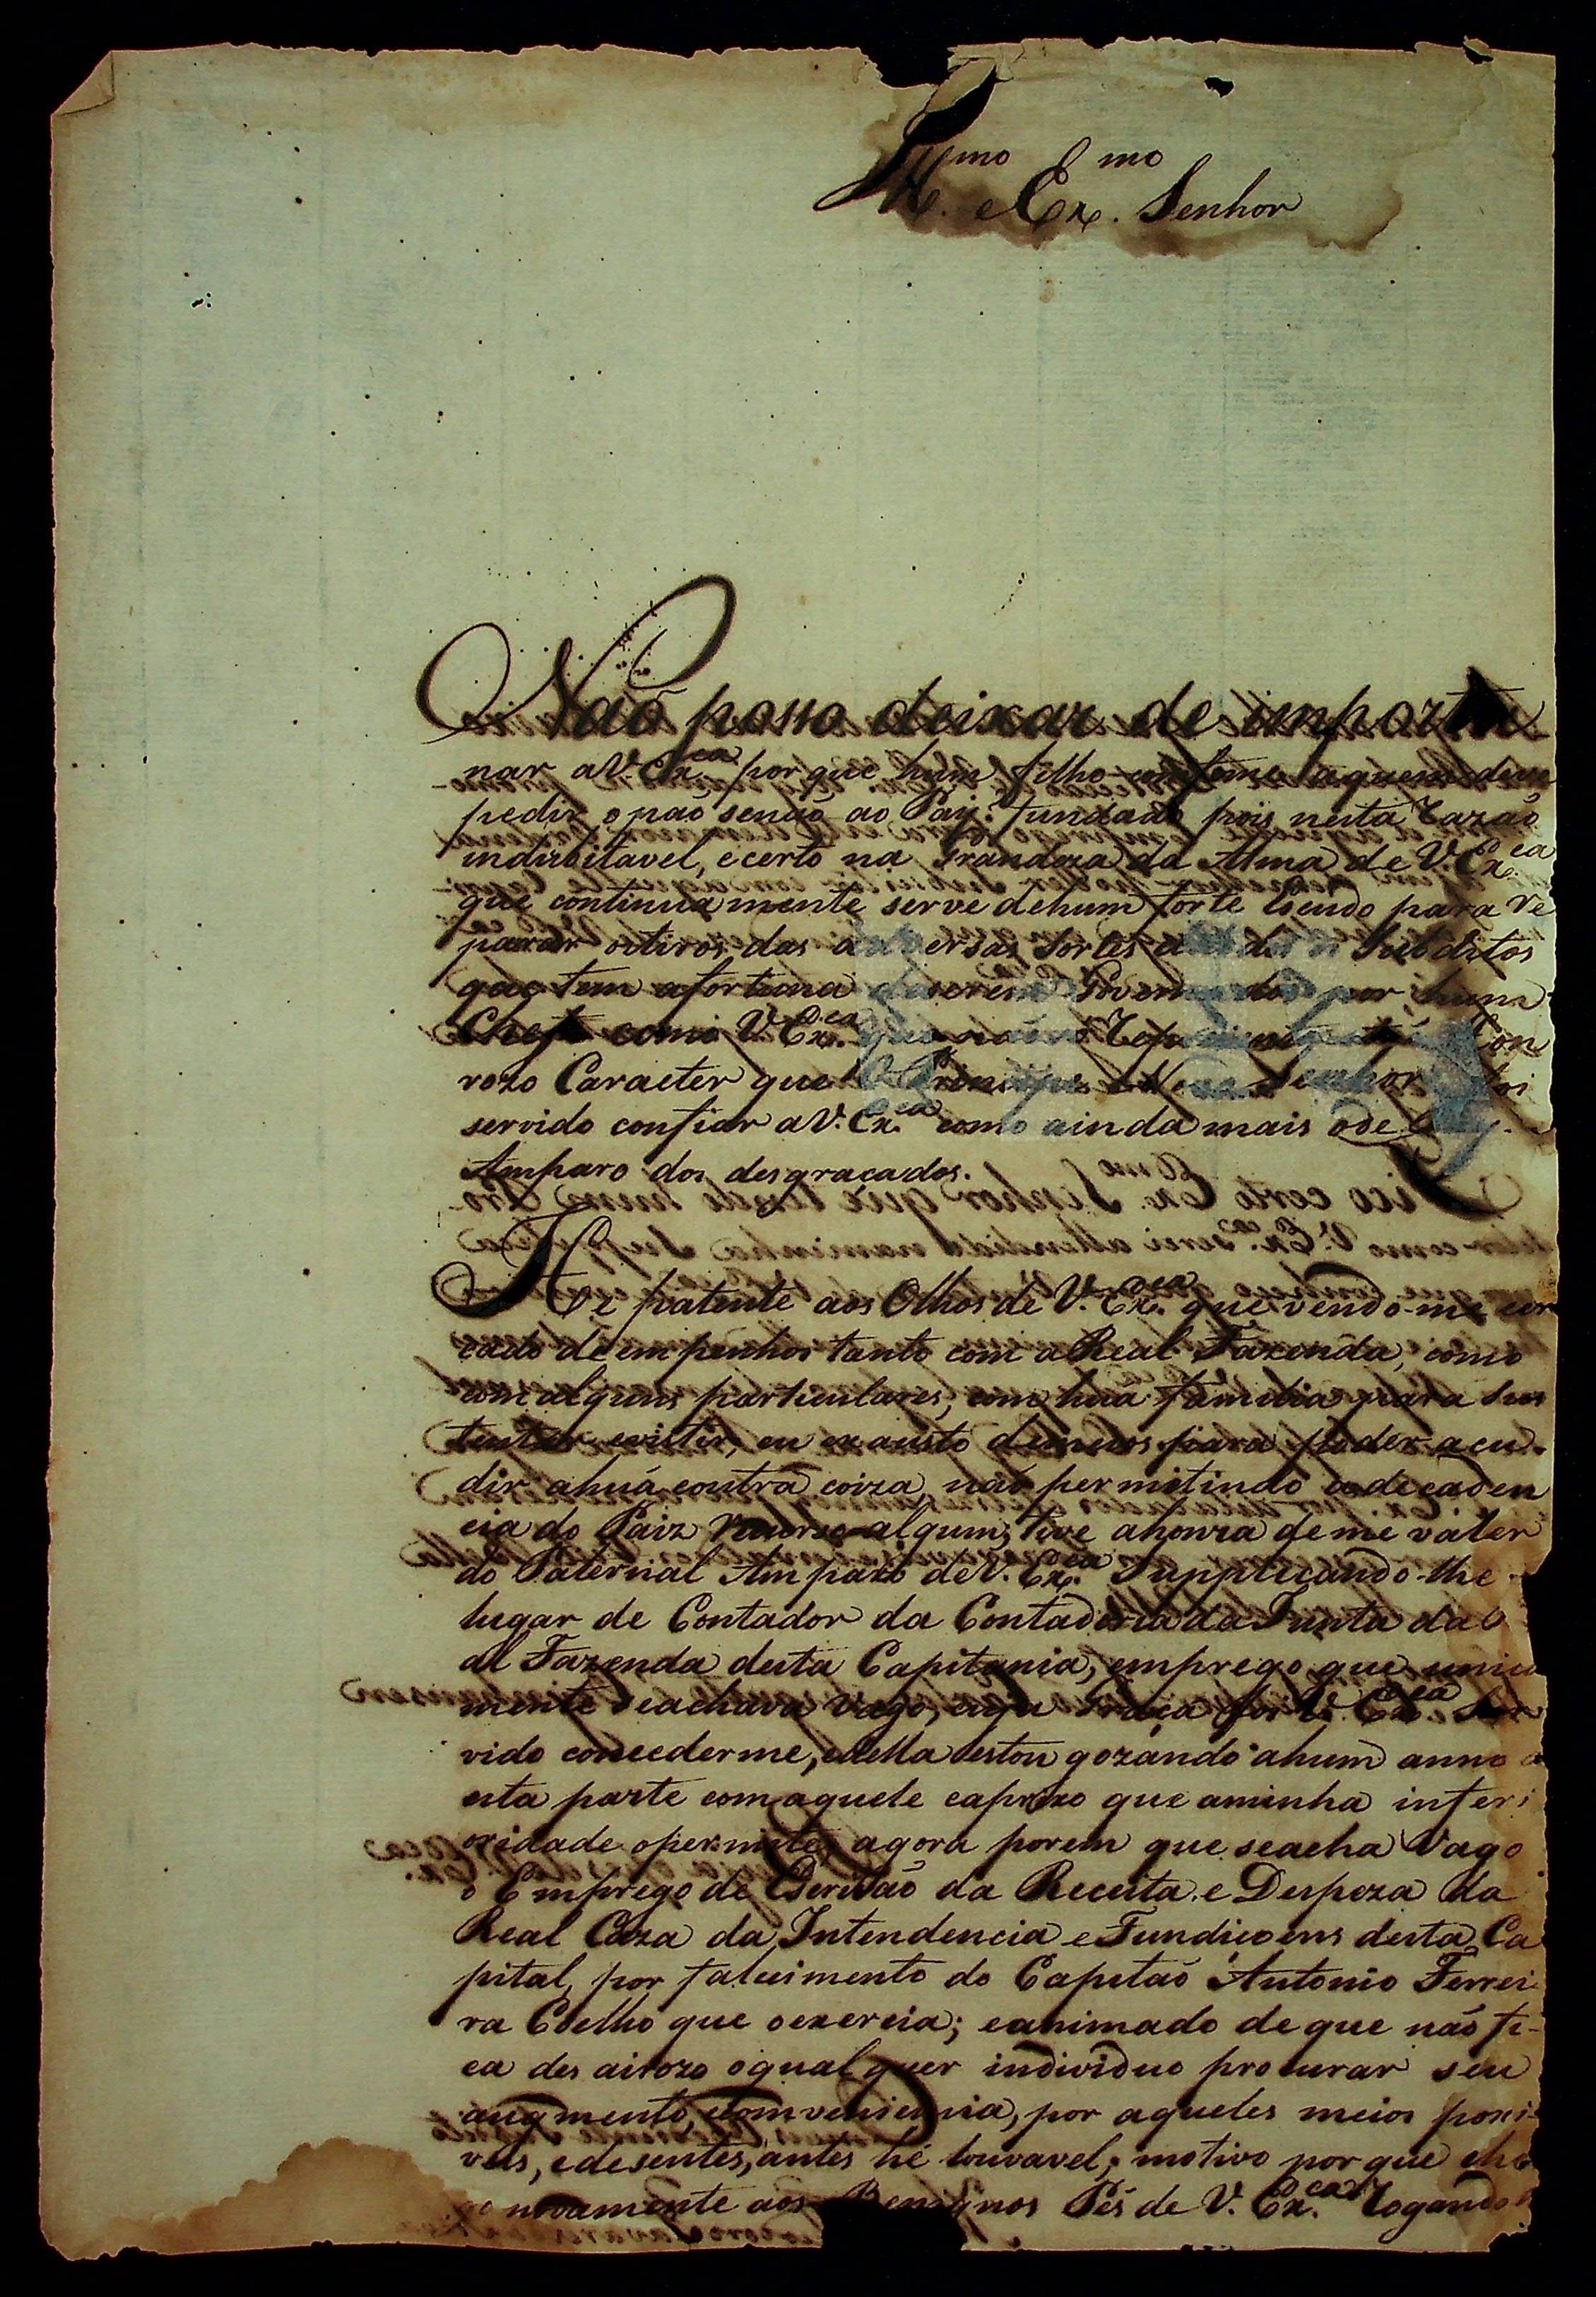 Ill.mo e Ex.mo Senhor
Naõ posso deixar de importu
nar a V. Ex.ca por que hum filho com fome aquem deve
pedir o paõ senaõ ao Pay: fundado pois nesta razaõ
indubitavel, e certo na Grandeza da Alma de V. Ex.ca
que continuamente serve dehum forte Escudo para re
parar os tiros das adversas Sortes Subditos
que tem afortuna deserem Governados por hum
Chefe como V. Ex.ca que naõ só Hon
rozo Caracter que O Principe N. Senhor foi
servido confiar a V. Ex.ca como ainda mais ode
Amparo dos desgraçados.
He patente aos Olhos de V. Ex.ca que vendo-me cer
cado de empenhos tanto com a Real Fazenda, como
com alguns particulares, com huã familia para Sus
tentar evistir, eu exausto demeios para poder acu-
dir ahuã eoutra coiza, naõ permitindo adecaden
cia do Paiz recurso algum; tive ahonra de me valer
do Paternal Amparo de V. Ex.ca Supplicando-lhe
lugar de Contador da Contadoria da Junta da
al Fazenda desta Capitania, emprego que unica
mente seachava vago, cuja Graça foi V. Ex.ca Ser
vido concederme, edella estou gozando ahum anno a
esta parte com aquele caprixo que aminha inferi
oridade opermite, agora porem que seacha Vago
o Emprego de Escrivaõ da Receita e Despeza da
Real Caza da Intendencia e Fundiçoens desta Ca
pital, por falecimento do Capitaõ Antonio Ferrei
ra Coelho que oexercia; eanimado de que naõ fi-
ca des airozo oqualquer individuo procurar seu
augmento, econveniencia, por aqueles meios poxi-
veis, edesentes, antes hé louvavel; motivo por que che
go novamente aos Benignos Pés de V. Ex.ca Rogando